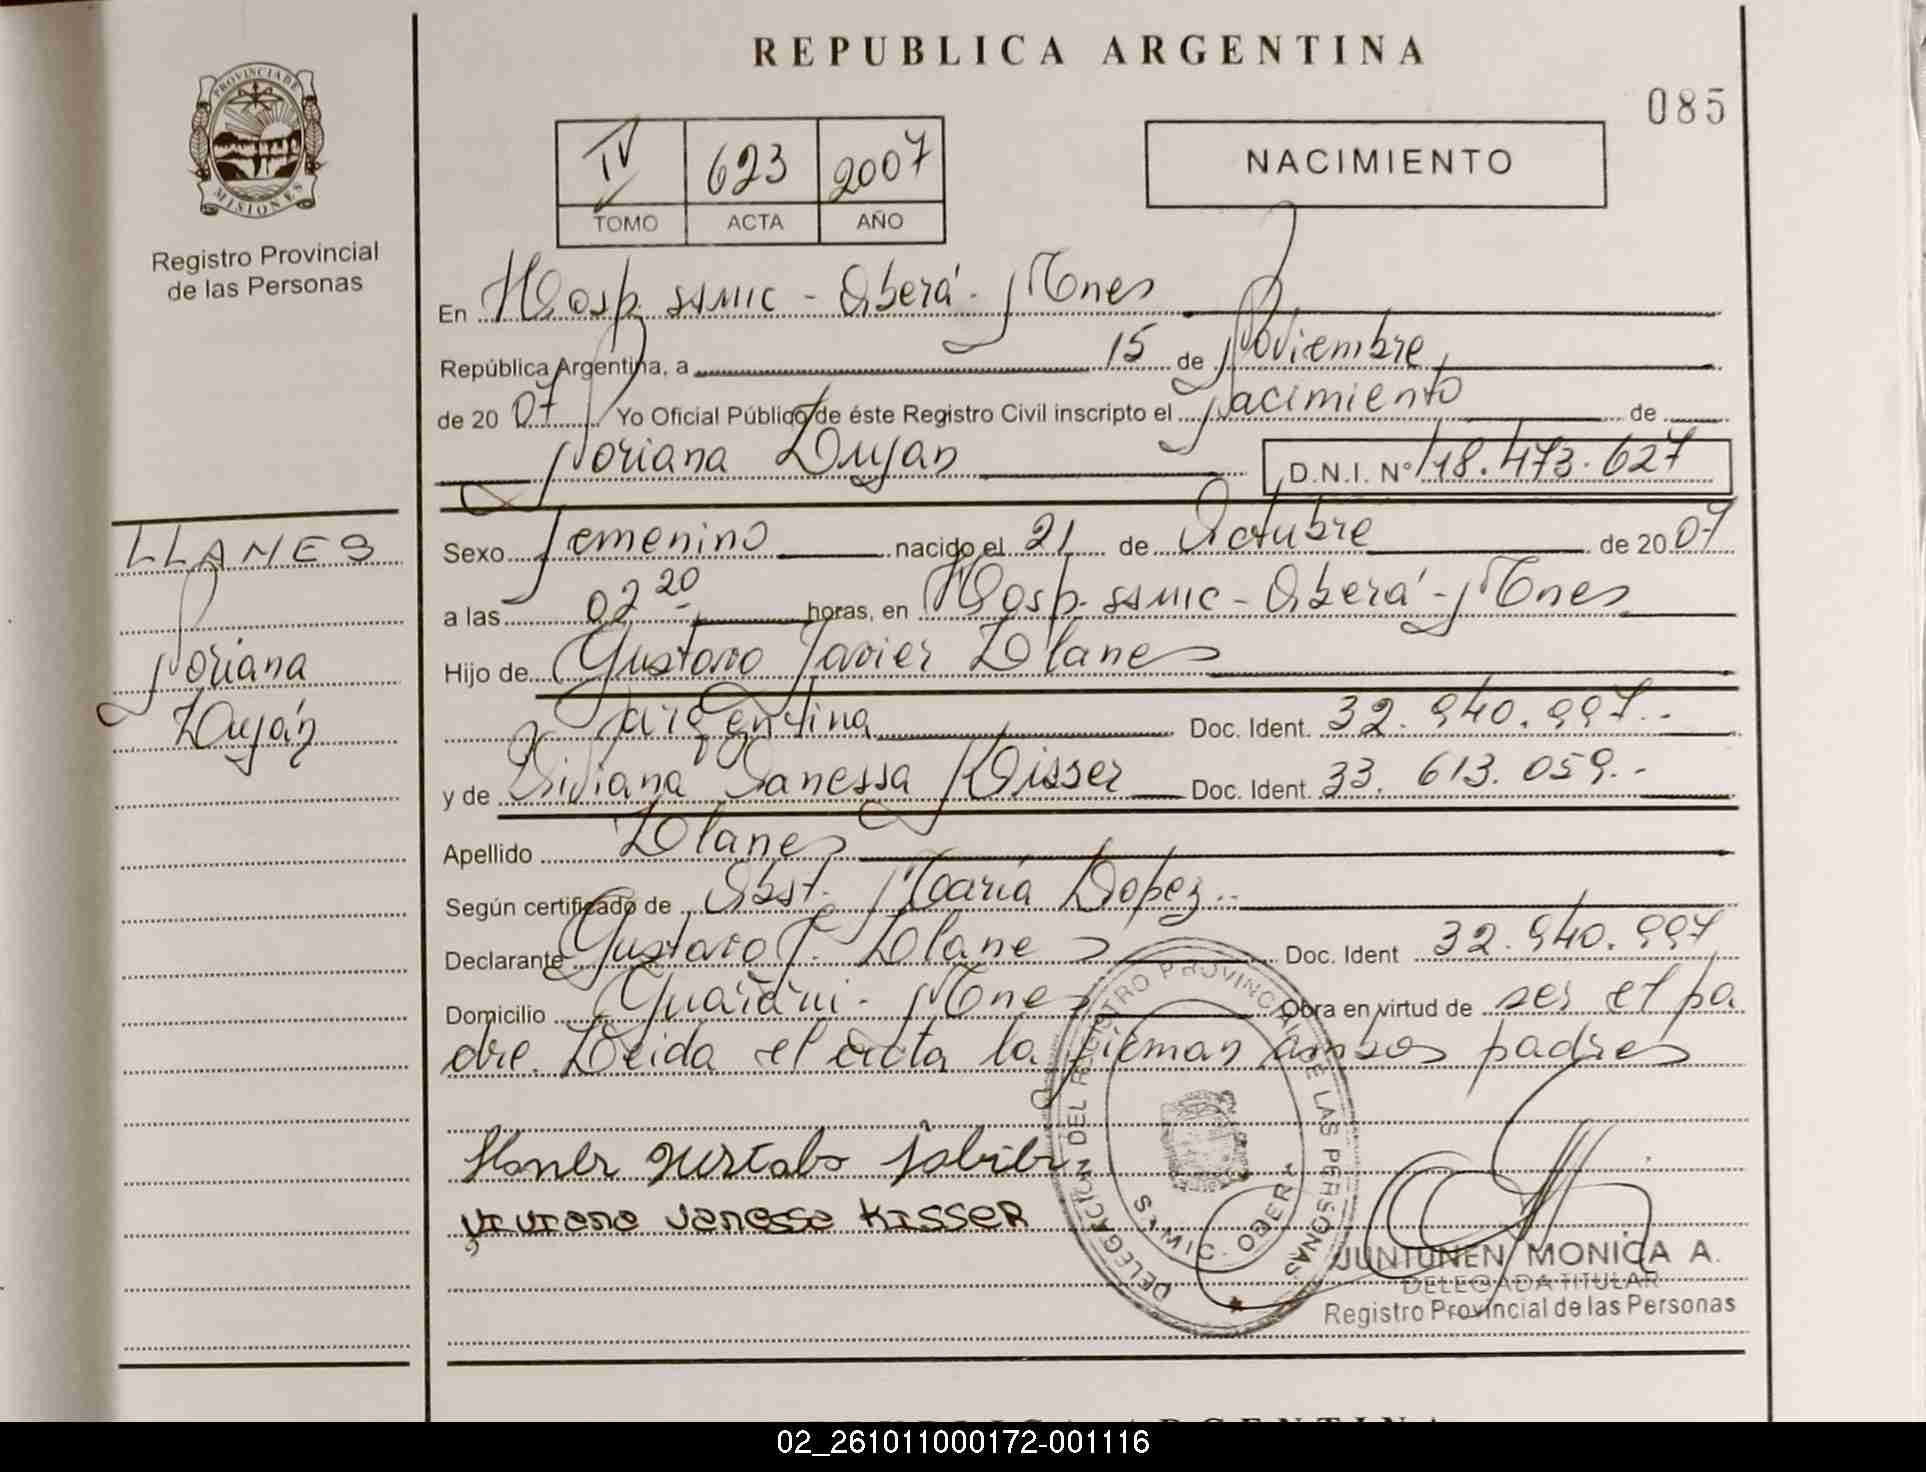 REPUBLICA ARGENTINA
085
PROVINCIA DE
MISIONES
Registro Provincial
de las Personas
IV 623 2007
TOMO ACTA AÑO
NACIMIENTO
En Hosp. SAMIC - Oberá - Mnes
República Argentina, a 15 de Noviembre
de 20 07 Yo Oficial Público de éste Registro Civil inscripto el Nacimiento de
Noriana Lujan D.N.I. Nº 48.473.627
LLANES
Noriana
Luján
Sexo Femenino nacido el 21 de Octubre de 20 07
a las 02 20 horas, en Hosp. SAMIC - Oberá - Mnes
Hijo de Gustavo Javier Llanes
Argentina Doc. Ident. 32.940.997.-
y de Viviana Vanessa Kisser Doc. Ident. 33.613.059.-
Apellido Llanes
Según certificado de Obst. María Lopez..
Declarante Gustavo J. Llanes Doc. Ident 32.940.997
Domicilio Guaraní - Mnes Obra en virtud de ser el pa
dre. Leida el acta la firman ambos padres
viviana vanessa KISSER
DELEGACION DEL REGISTRO PROVINCIAL DE LAS PERSONAS
S.A.MIC. OBERA
JUNTUNEN MONICA A.
DELEGADA TITULAR
Registro Provincial de las Personas
REPUBLICA ARGENTINA
02_261011000172-001116